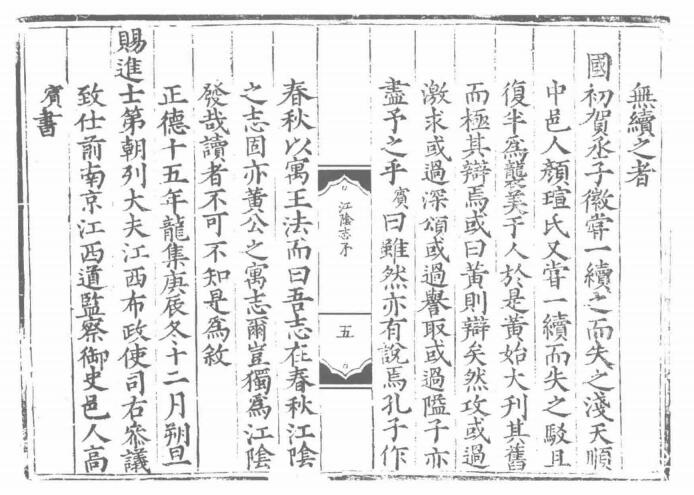 無續之者
國初賀丞子徽甞一續之而失之淺天順
中邑人顏瑄氏又甞一續而失之駁且
復半為襲美于人於是黃始大刊其舊
而極其辯焉或曰黃則辯矣然攻或過
激求或過深頌或過譽取或過隘子亦
盡予之乎賓曰雖然亦有說焉孔子作
江陰志序
五
春秋以寓王法而曰吾志在春秋江陰
之志固亦黃公之寓志爾豈獨為江陰
發哉讀者不可不知是為敘
正德十五年龍集庚辰冬十二月朔旦
賜進士第朝列大夫江西布政使司右叅議
致仕前南京江西道監察御史邑人高
賓書